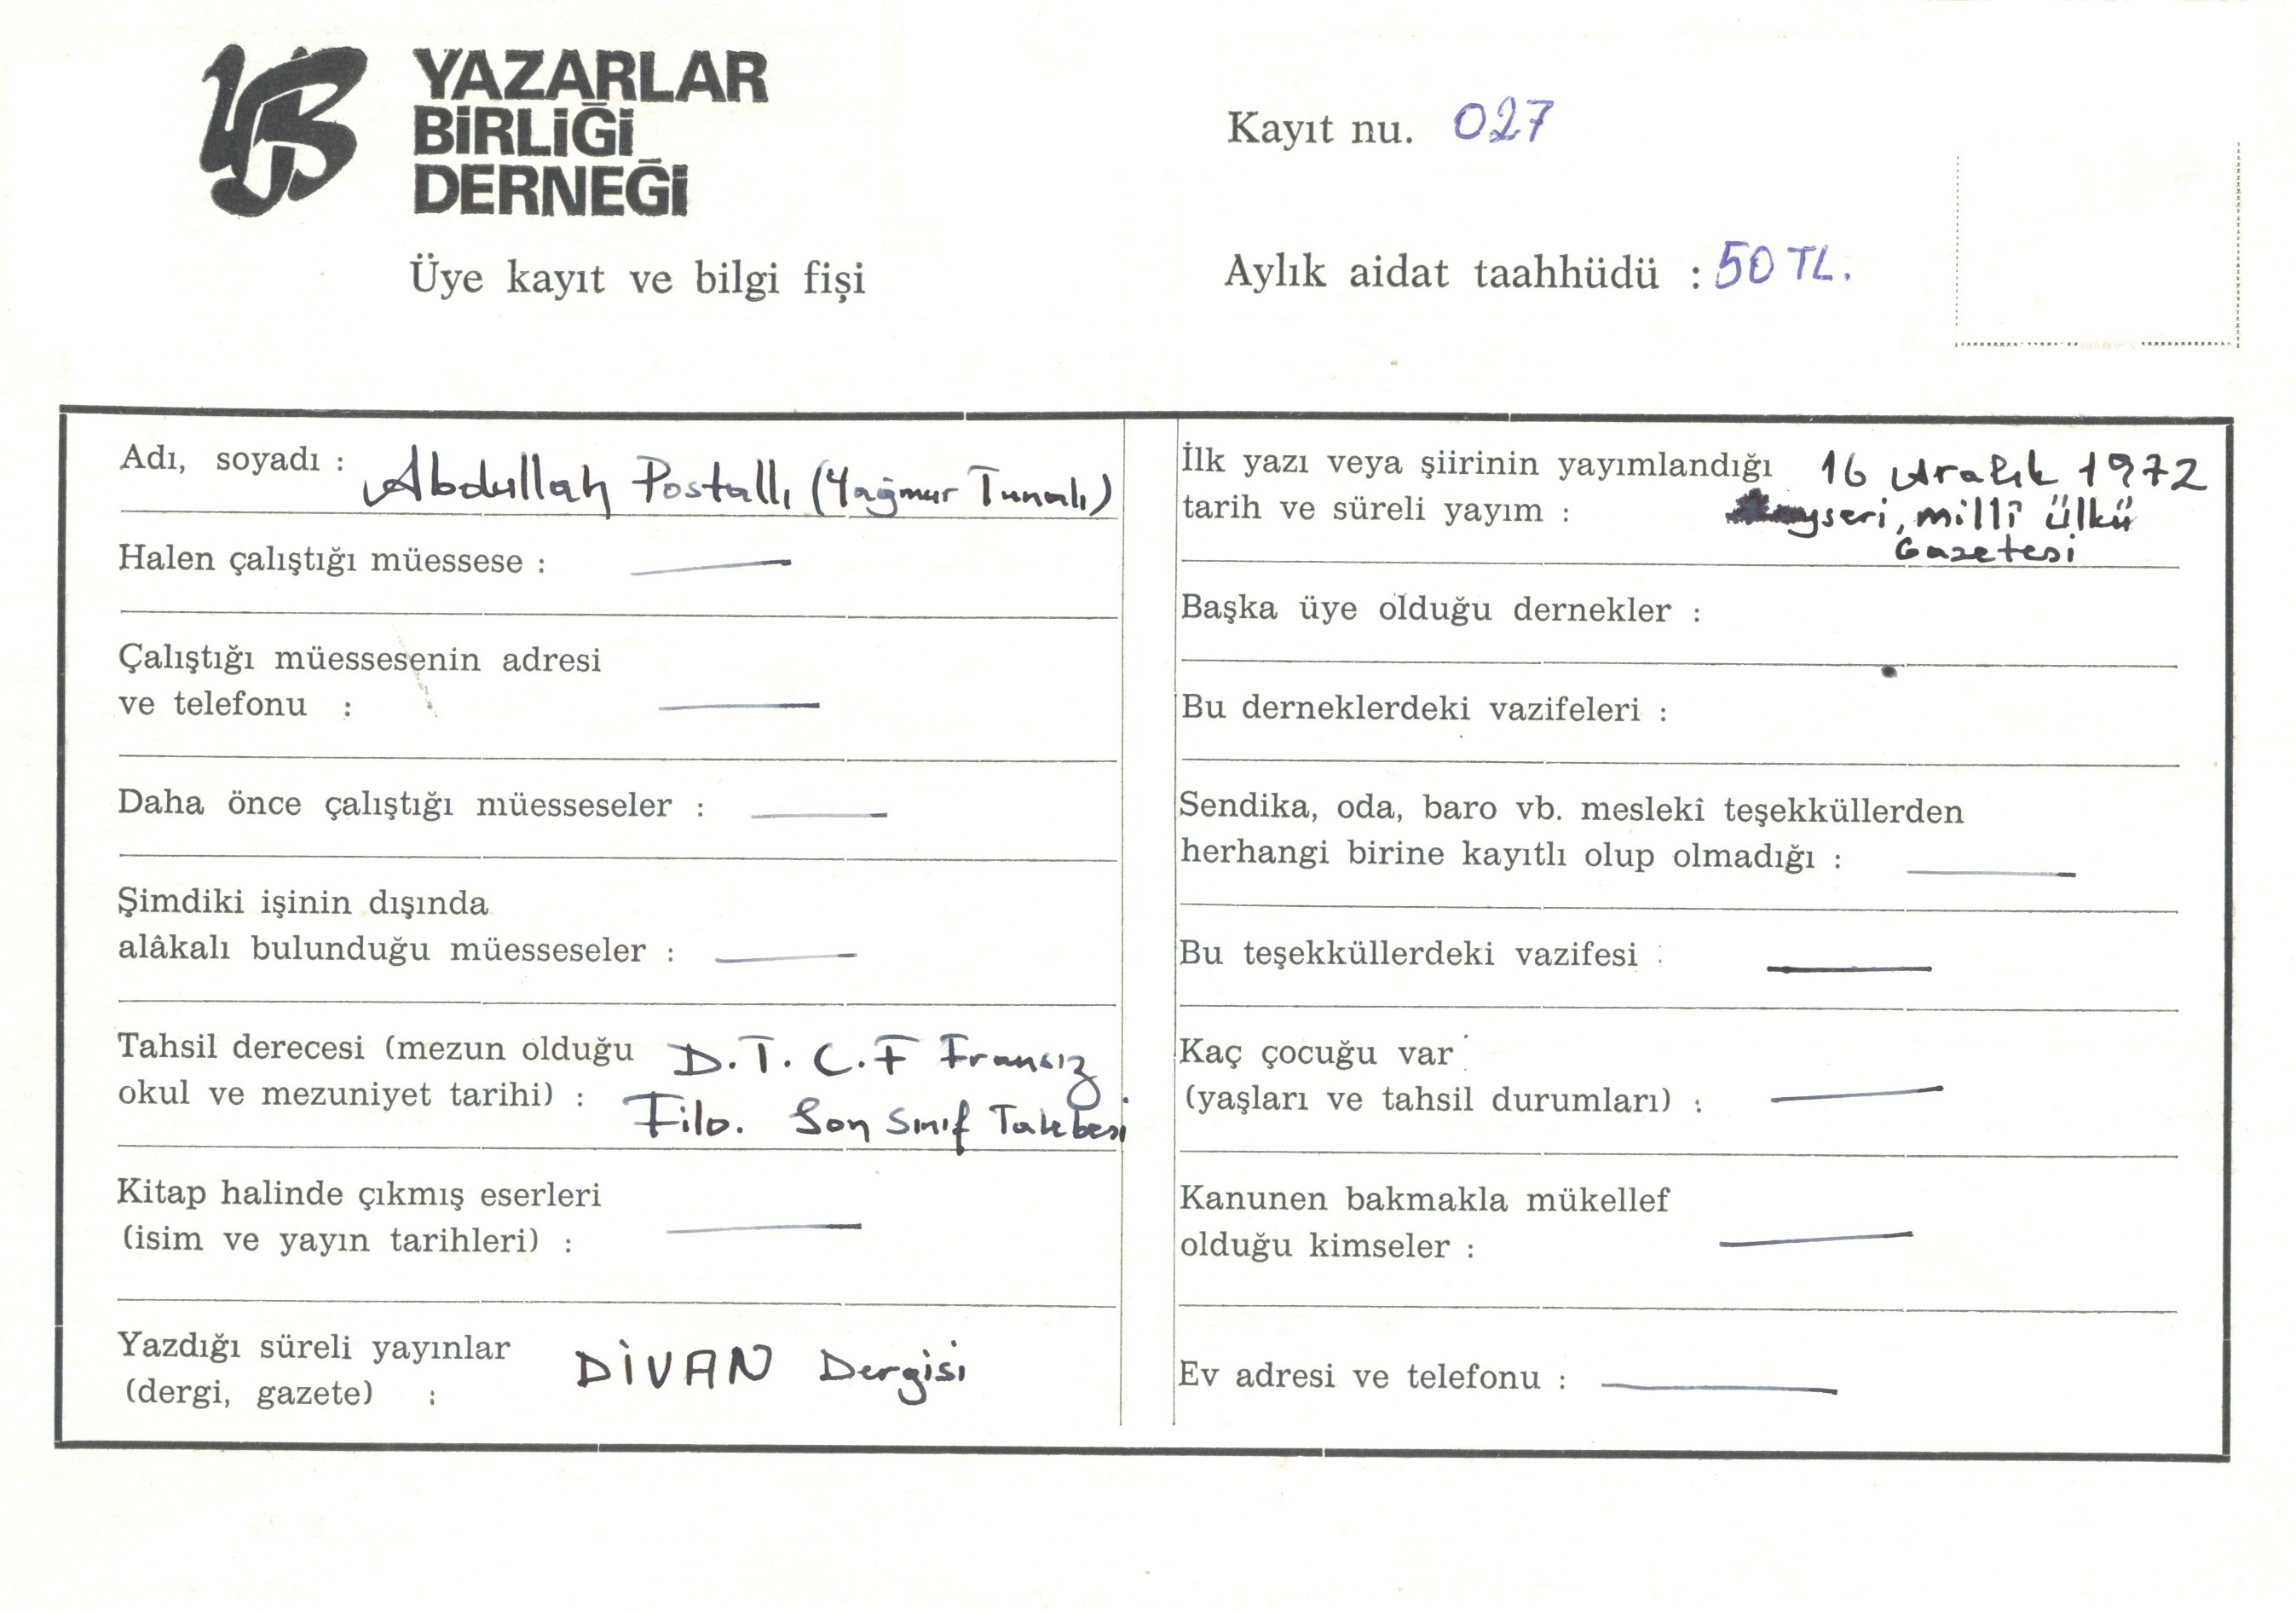 YAZARLAR
BİRLİĞİ
DERNEĞİ
Üye kayıt ve bilgi fişi
Kayıt nu. 027
Aylık aidat taahhüdü : 50 TL.
Adı, soyadı : Abdullah Postallı (Yağmur Tunalı)
Halen çalıştığı müessese :
Çalıştığı müessesenin adresi
ve telefonu :
Daha önce çalıştığı müesseseler :
Şimdiki işinin dışında
alâkalı bulunduğu müesseseler :
Tahsil derecesi (mezun olduğu D.T.C.F Fransız
okul ve mezuniyet tarihi) : Filo. Son Sınıf Talebesi
Kitap halinde çıkmış eserleri
(isim ve yayın tarihleri) :
Yazdığı süreli yayınlar
(dergi, gazete) : DİVAN Dergisi
İlk yazı veya şiirinin yayımlandığı 16 Aralık 1972
tarih ve süreli yayım : Kayseri, millî ülkü
Gazetesi
Başka üye olduğu dernekler :
Bu derneklerdeki vazifeleri :
Sendika, oda, baro vb. meslekî teşekküllerden
herhangi birine kayıtlı olup olmadığı :
Bu teşekküllerdeki vazifesi :
Kaç çocuğu var
(yaşları ve tahsil durumları) :
Kanunen bakmakla mükellef
olduğu kimseler :
Ev adresi ve telefonu :